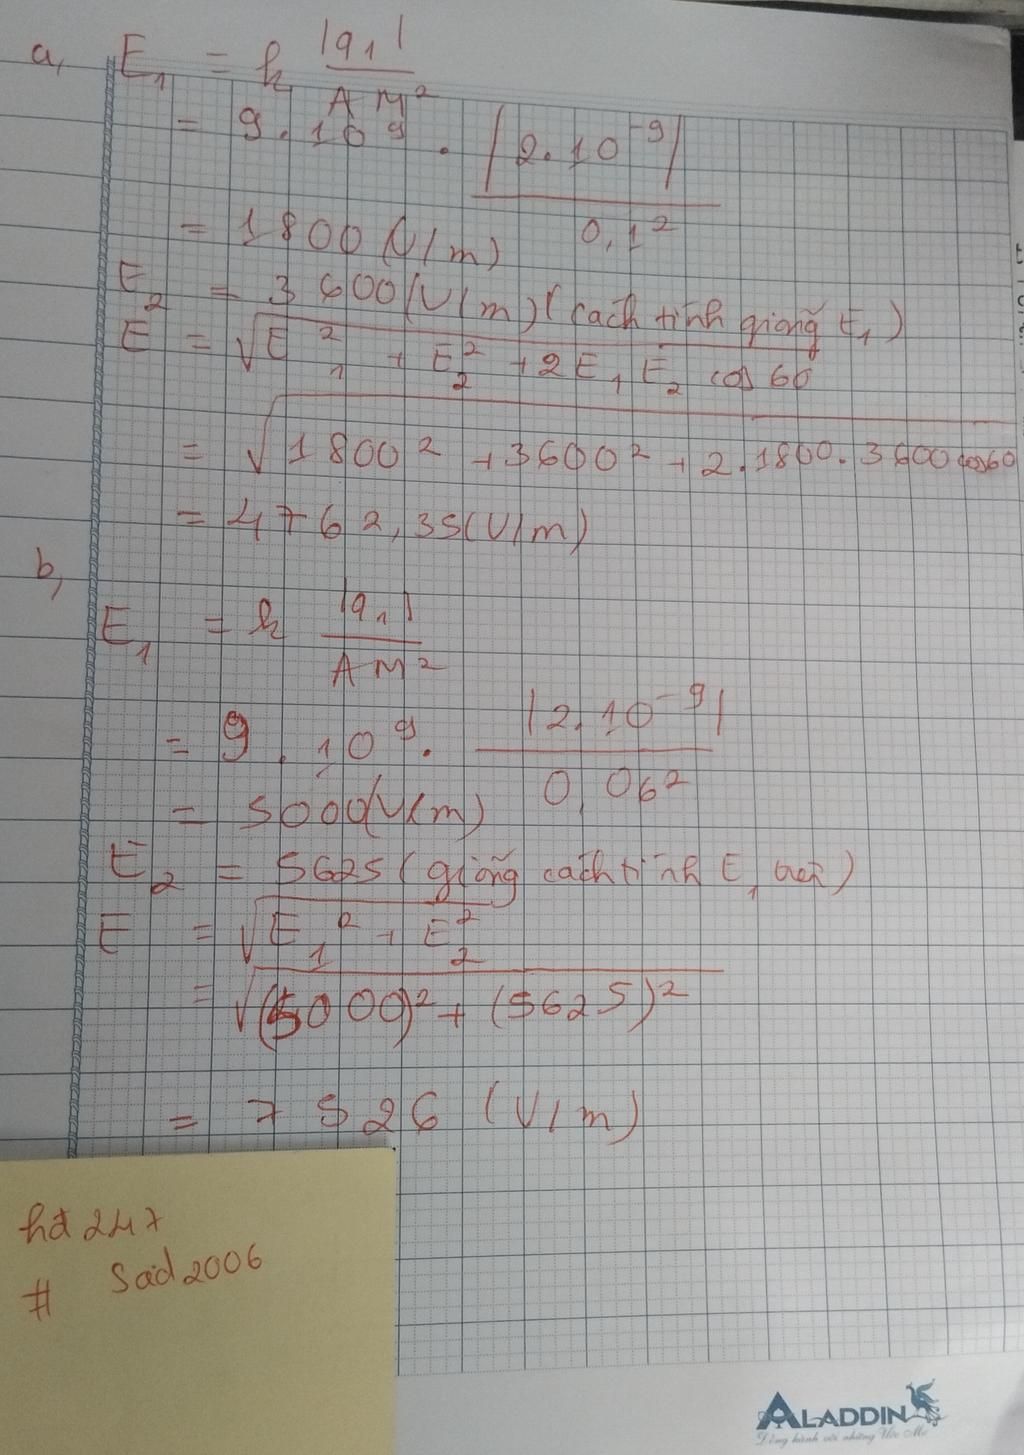 a, E₁ = k |q₁| / AM²
= 9.10⁹ . |2.10⁻⁹| / 0,1²
= 1800 (V/m)
E₂ = 3600 (V/m) (cách tính giống E₁)
E = √E₁² + E₂² + 2E₁E₂ cos 60
= √1800² + 3600² + 2.1800.3600 cos60
= 4762,35 (V/m)
b,
E₁ = k |q₁| / AM²
= 9.10⁹. |2.10⁻⁹| / 0,06²
= 5000 (V/m)
E₂ = 5625 (giống cách tính E₁ trên)
E = √E₁² + E₂²
= √(5000)² + (5625)²
= 7526 (V/m)
hd 247
# Sad2006
ALADDIN
Đồng hành với những Ước Mơ